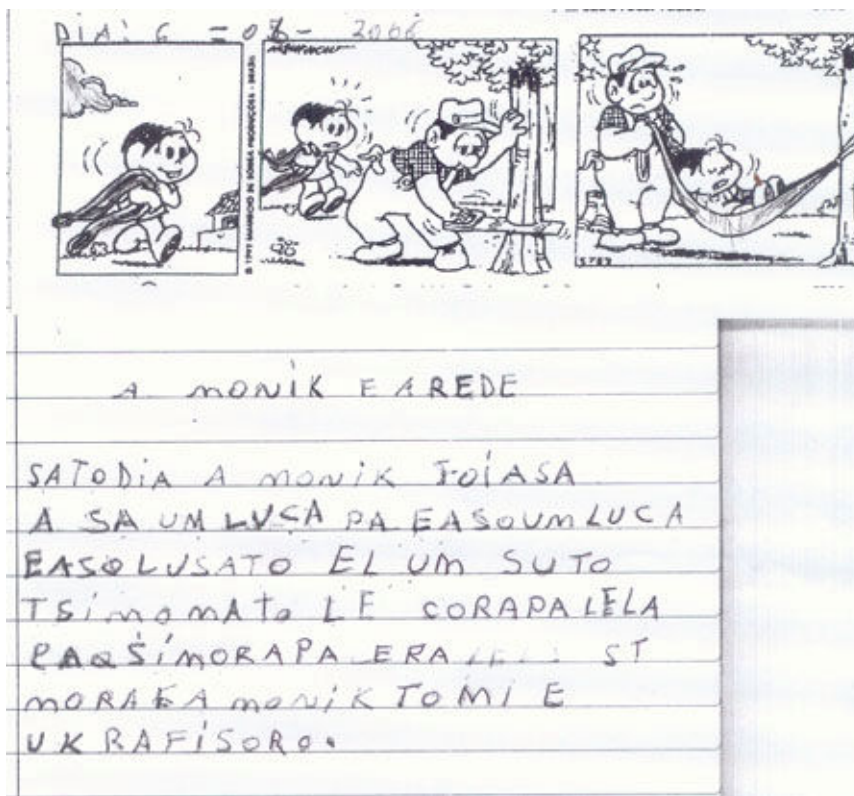 DIA: 6 = 08 - 2006
© 1999 MAURICIO DE SOUSA PRODUÇÕES - BRASIL
A MONIK E A REDE
SATODIA A MONIK FOIASA
A SA UM LUCA PA EASOUM LUCA
EASOLUSATO EL UM SUTO
TSIMOMATO LE CORAPALELA
PAQSIMORAPA ERA ST
MORAEA MONIK TOMI E
UK RAFISORO.